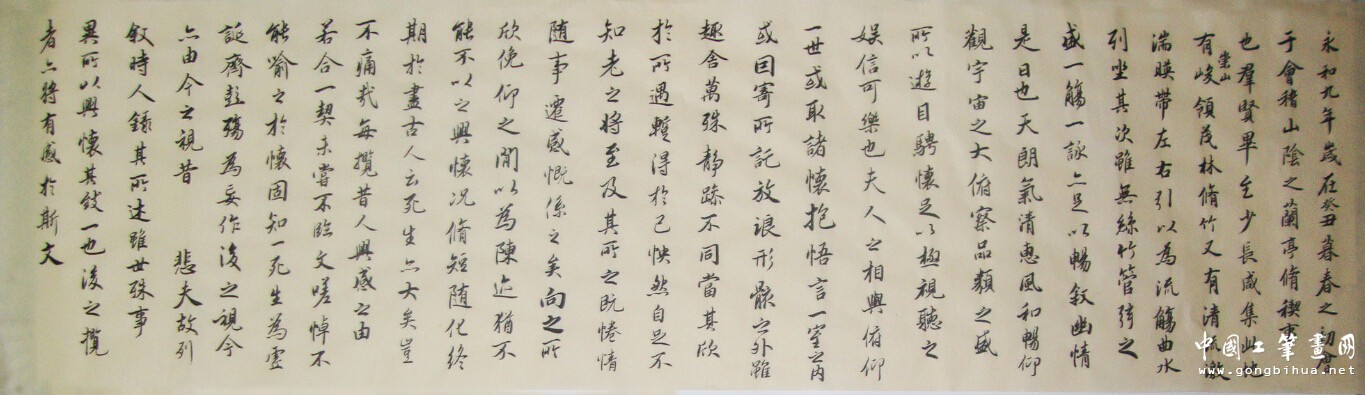 永和九年歲在癸丑暮春之初會
于會稽山陰之蘭亭脩禊事
也羣賢畢至少長咸集此地
有崇山峻領茂林脩竹又有清流激
湍暎帶左右引以為流觴曲水
列坐其次雖無絲竹管弦之
盛一觴一詠亦足以暢敘幽情
是日也天朗氣清惠風和暢仰
觀宇宙之大俯察品類之盛
所以遊目騁懷足以極視聽之
娛信可樂也夫人之相與俯仰
一世或取諸懷抱悟言一室之內
或因寄所託放浪形骸之外雖
趣舍萬殊靜躁不同當其欣
於所遇蹔得於己怏然自足不
知老之將至及其所之既惓情
隨事遷感慨係之矣向之所
欣俛仰之閒以為陳迹猶不
能不以之興懷況脩短隨化終
期於盡古人云死生亦大矣豈
不痛哉每攬昔人興感之由
若合一契未嘗不臨文嗟悼不
能喻之於懷固知一死生為虛
誕齊彭殤為妄作後之視今
亦由今之視昔 悲夫故列
敘時人錄其所述雖世殊事
異所以興懷其致一也後之攬
者亦將有感於斯文
中國工筆畫网
www.gongbihua.net